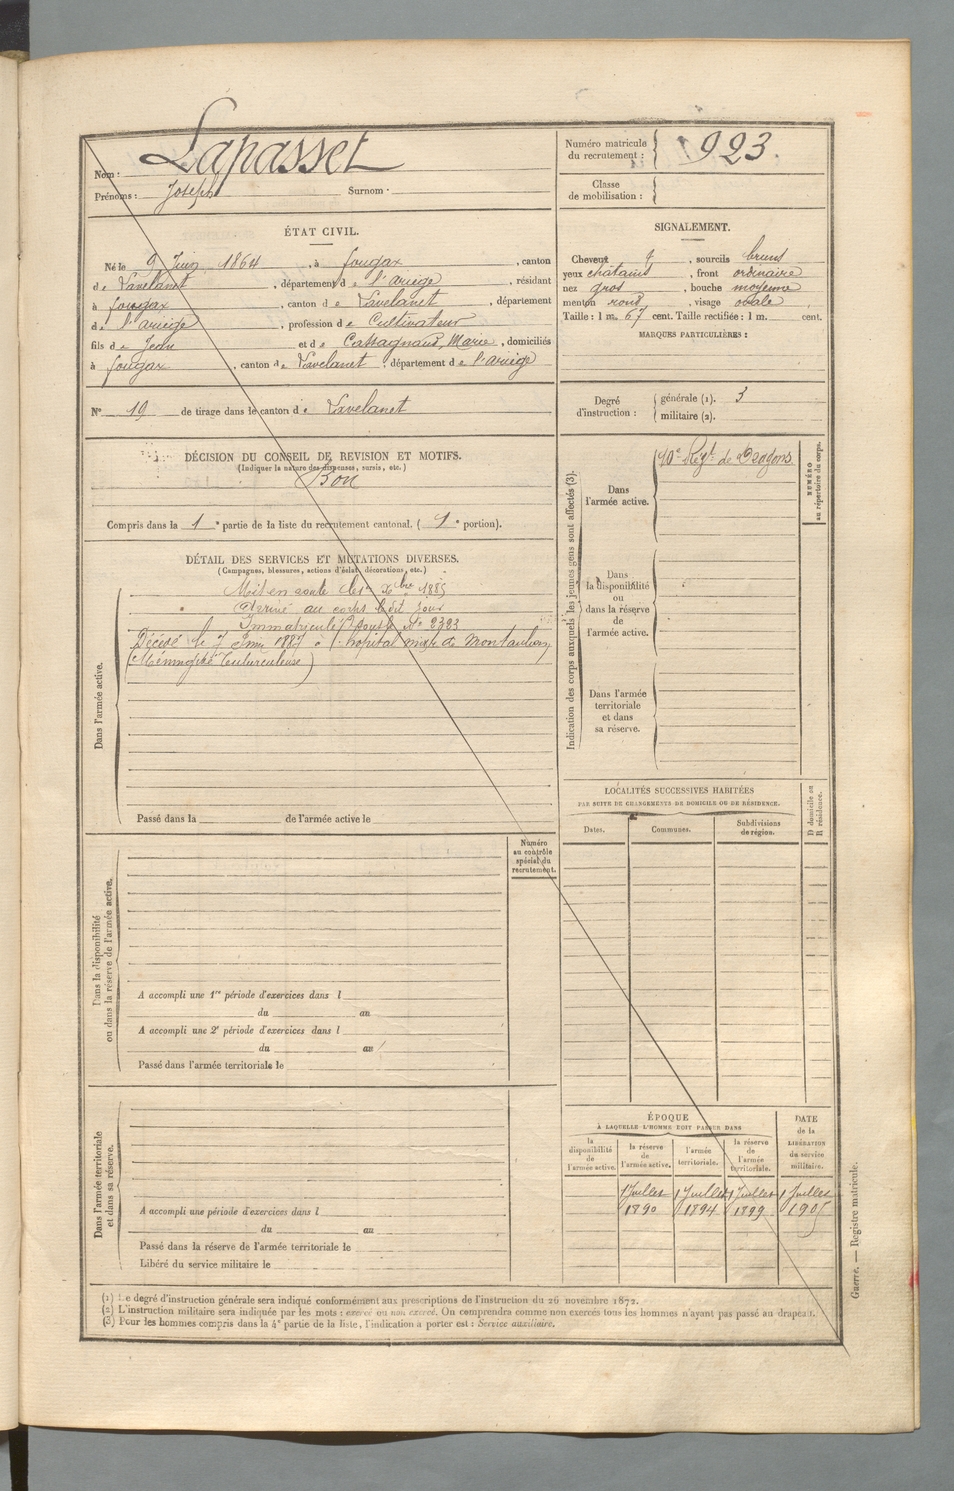 Nom : Lapasset
Prénoms : Joseph Surnom :
Numéro matricule du recrutement : 923.
Classe de mobilisation :
ÉTAT CIVIL.
Né le 9 Juin 1864, à fougax, canton
de Lavelanet, département de l'ariège, résidant
à fougax, canton de Lavelanet, département
de l'ariège, profession de Cultivateur
fils de Jean et de Cassagnaud, Marie, domiciliés
à fougax, canton de Lavelanet, département de l'ariège
N° 19 de tirage dans le canton de Lavelanet
SIGNALEMENT.
Cheveux, sourcils bruns
yeux châtains, front ordinaire
nez gros, bouche moyenne
menton rond, visage ovale
Taille : 1 m. 67 cent. Taille rectifiée : 1 m. cent.
MARQUES PARTICULIÈRES :
Degré d'instruction : générale (1). 3
militaire (2).
DÉCISION DU CONSEIL DE REVISION ET MOTIFS.
(Indiquer la nature des dispenses, sursis, etc.)
Bon
Compris dans la 1e partie de la liste du recrutement cantonal. ( 1e portion).
DÉTAIL DES SERVICES ET MUTATIONS DIVERSES.
(Campagnes, blessures, actions d'éclat, décorations, etc.)
Dans l'armée active.
Mis en route le 1er Xbre 1885
Arrivé au corps le dit jour
Immatriculé sous le N° 2393
Décédé le 7 1887 à l'hôpital mixte de Montauban
(Tuberculeuse)
Passé dans la de l'armée active le
Indication des corps auxquels les jeunes gens sont affectés (3).
Dans l'armée active.
10e Régt de Dragons
NUMÉRO au répertoire du corps.
Dans la disponibilité ou dans la réserve de l'armée active.
Dans l'armée territoriale et dans sa réserve.
LOCALITÉS SUCCESSIVES HABITÉES
PAR SUITE DE CHANGEMENTS DE DOMICILE OU DE RÉSIDENCE.
Dates. Communes. Subdivisions de région.
D domicile ou R résidence.
Dans la disponibilité ou dans la réserve de l'armée active.
Numéro au contrôle spécial du recrutement.
A accompli une 1re période d'exercices dans l
du au
A accompli une 2e période d'exercices dans l
du au
Passé dans l'armée territoriale le
Dans l'armée territoriale et dans sa réserve.
A accompli une période d'exercices dans l
du au
Passé dans la réserve de l'armée territoriale le
Libéré du service militaire le
ÉPOQUE
À LAQUELLE L'HOMME DOIT PASSER DANS
la disponibilité de l'armée active.
la réserve de l'armée active.
l'armée territoriale.
la réserve de l'armée territoriale.
DATE de la LIBÉRATION du service militaire.
1 Juillet 1890
1 Juillet 1894
1 Juillet 1899
1 Juillet 1905
(1) Le degré d'instruction générale sera indiqué conformément aux prescriptions de l'instruction du 26 novembre 1872.
(2) L'instruction militaire sera indiquée par les mots : exercé ou non exercé. On comprendra comme non exercés tous les hommes n'ayant pas passé au drapeau.
(3) Pour les hommes compris dans la 4e partie de la liste, l'indication à porter est : Service auxiliaire.
Guerre. — Registre matricule.